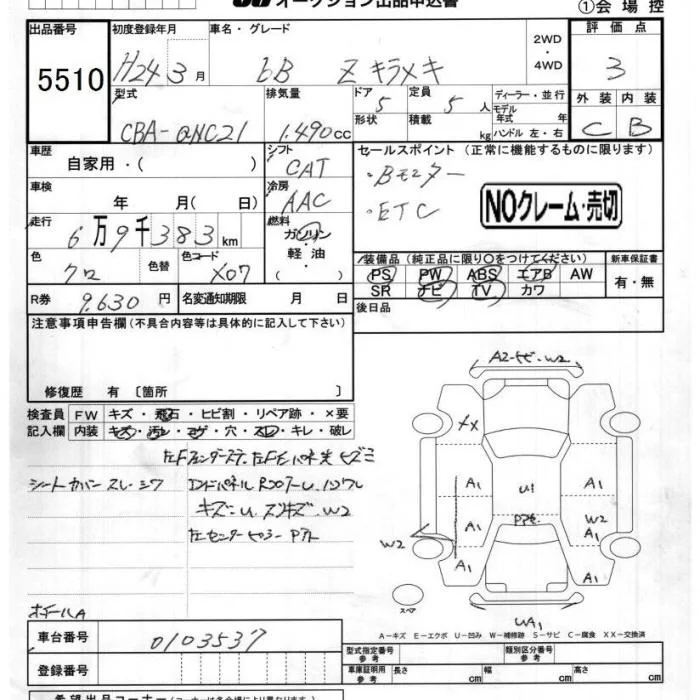 オークション出品申込書
①会場控
出品番号
5510
初度登録年月
H24 3月
車名・グレード
bB Z キラメキ
2WD
・
4WD
評価点
3
外装 内装
C B
型式
CBA-QNC21
排気量
1.490cc
ドア 5
形状
定員 5人
積載 kg
ディーラー・並行
モデル
年式 年
ハンドル 左・右
車歴
自家用・( )
シフト
CAT
セールスポイント (正常に機能するものに限ります)
・Bモニター
・ETC
NOクレーム・売切
車検
年 月( 日)
冷房
AAC
走行
6万9千383km
燃料
ガソリン
・軽油・
( )
色
クロ
色替
色コード
X07
装備品(純正品に限り○をつけてください)
PS PW ABS エアB AW
SR ナビ TV カワ
新車保証書
有・無
R券
9.630円
名変通知期限
月 日
後日品
注意事項申告欄(不具合内容等は具体的に記入して下さい)
修復歴 有〔箇所 〕
検査員
記入欄
FW キズ・飛石・ヒビ割・リペア跡・×要
内装 キズ・汚レ・コゲ・穴・スレ・キレ・破レ
シートカバー スレ・シワ
キズ・U
W2
ホイールA
A2 W2
XX
A1
A1
A1
U1
A1
W2
A1
A1
W2
スペア
A-キズ E-エクボ U-凹み W-補修跡 S-サビ C-腐食 XX-交換済
車台番号
0103537
登録番号
型式指定番号
参考
類別区分番号
参考
車庫証明用
参考
長さ cm
幅 cm
高さ cm
希望出品コーナー